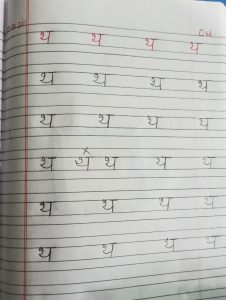 CW
थ थ थ थ
थ थ थ थ
थ थ थ थ
थ थ थ थ थ
थ थ थ थ
थ थ थ थ